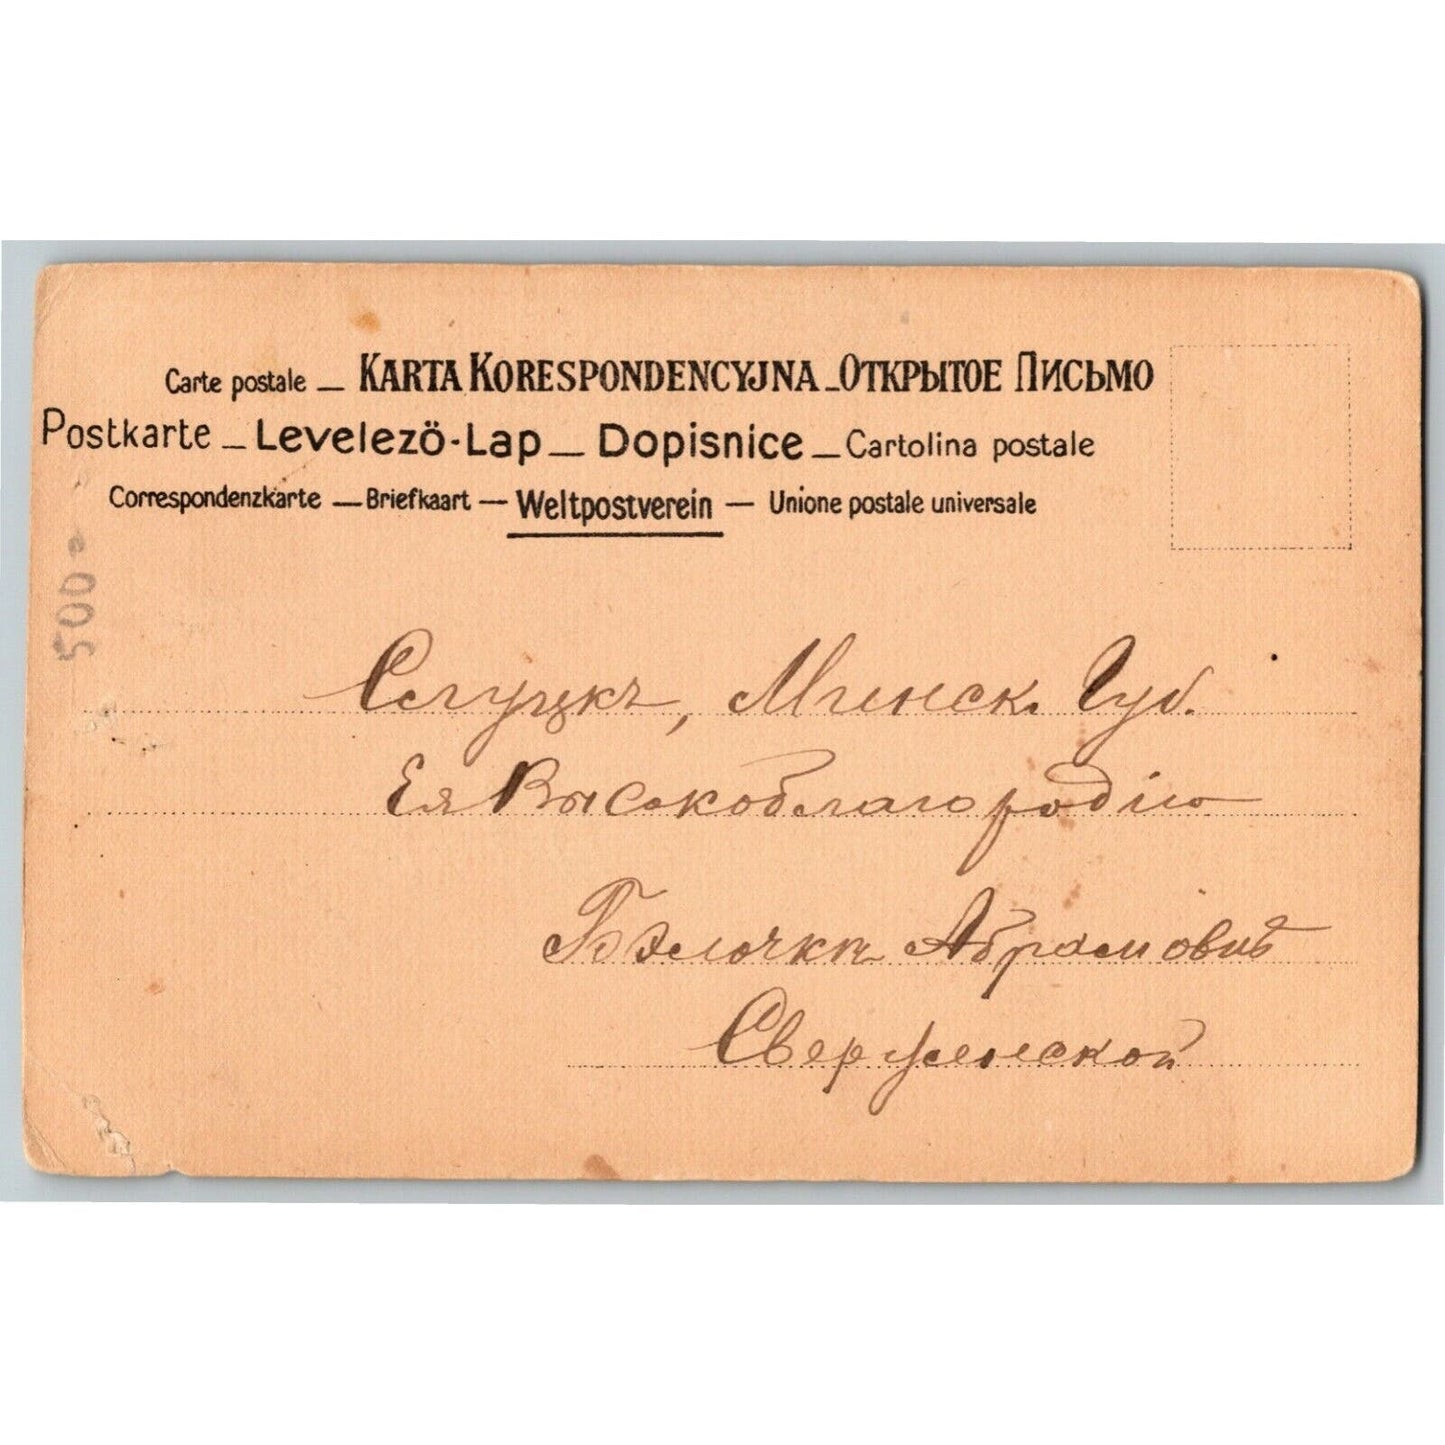 Carte postale — KARTA KORESPONDENCYJNA — ОТКРЫТОЕ ПИСЬМО
Postkarte — Levelező-Lap — Dopisnice — Cartolina postale
Correspondenzkarte — Briefkaart — Weltpostverein — Unione postale universale
500-
Слуцкъ, Минск. Губ.
Ея Высокоблагородію
Бэлочкѣ Абрамовнѣ
Сверженской